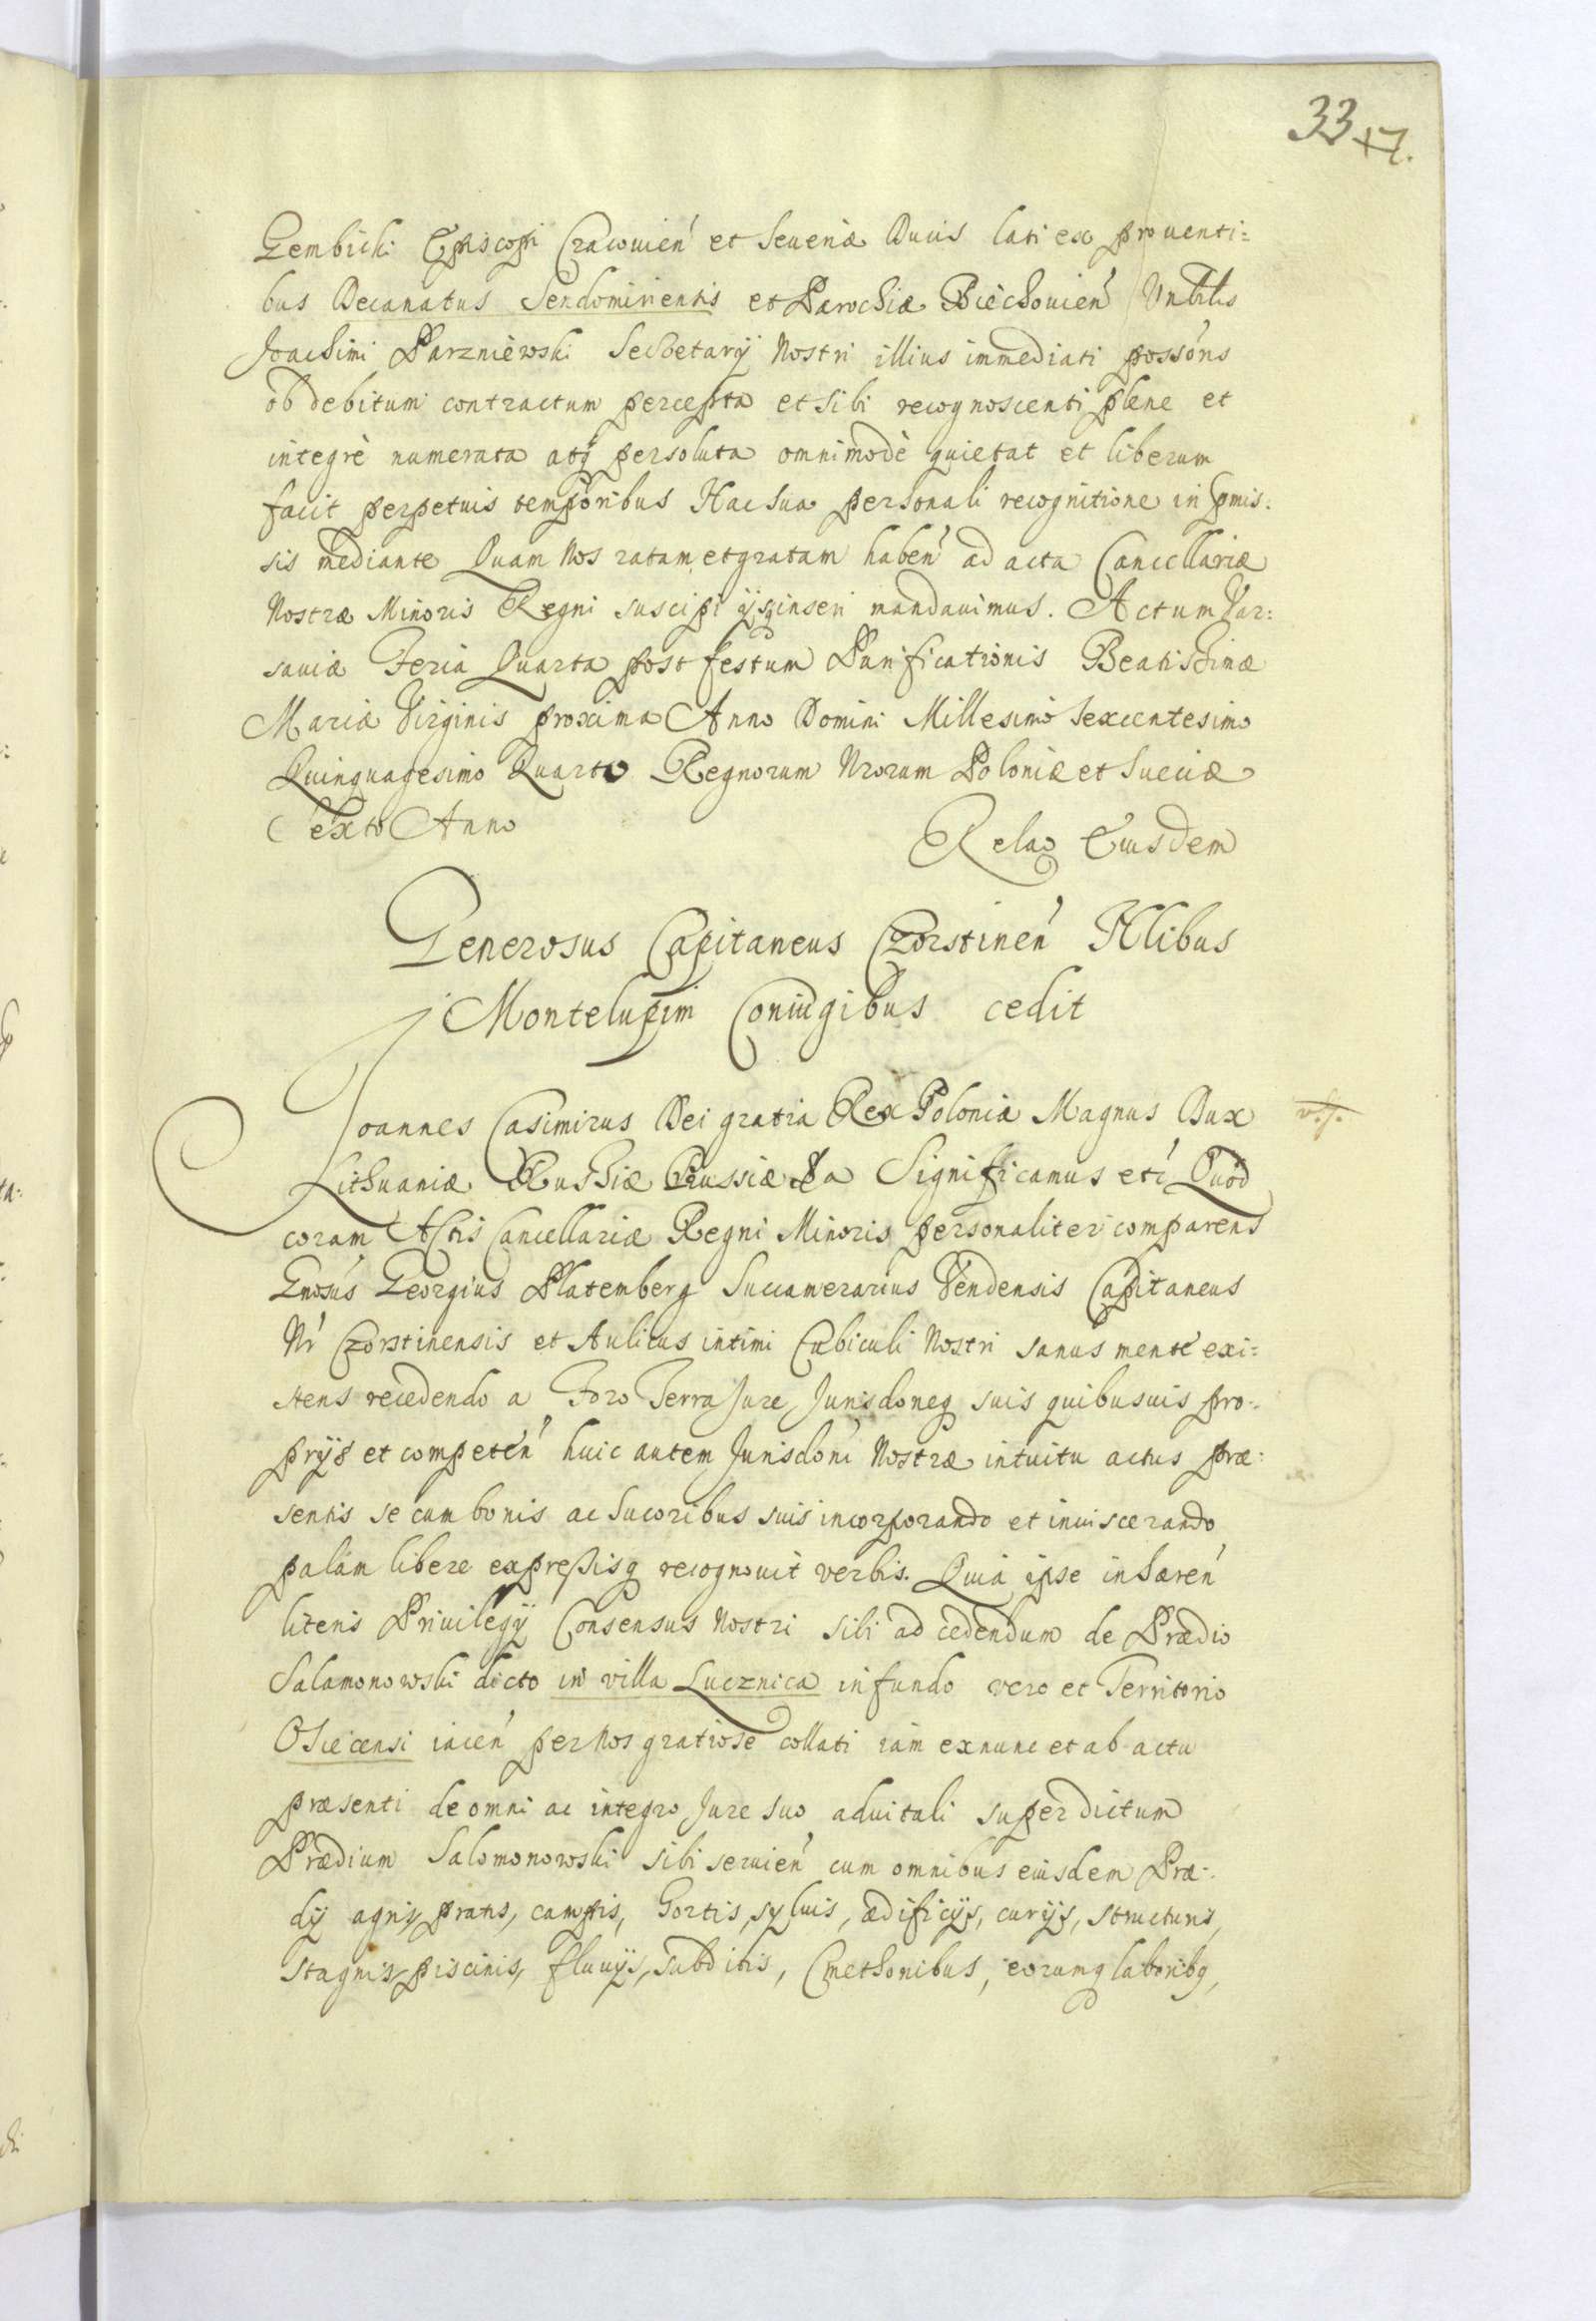 33 17.
Gembicki Episcopi Cracouien et Seueriæ Ducis lati ex prouenti=
bus Decanatus Sendomiriensis et Parochiæ Biechouien
Joachimi Parzniewski Secretarij Nostri illius immediati possóris
ob debitum contractum percepta et sibi recognoscenti plene et
integrè numerata atq persoluta omnimodè quietat et liberum
facit perpetuis temporibus Hac sua personali recognitione in pmis:
sis mediante Quam Nos ratam et gratam haben ad acta Cancellariæ
Nostræ Minoris Regni suscipi ijsq inseri mandauimus. Actum Var:
sauiæ Feria Quarta post festum Purificationis Beatissimæ
Mariæ Virginis proxima Anno Domini Millesimo Sexcentesimo
Quinquagesimo Quarto Regnorum Nrorum Poloniæ et Sueciæ
Sexto Anno
Relao Eiusdem
Generosus Capitaneus Czorstinen Nlibus
Montelupim Coniugibus cedit
Joannes Casimirus Dei gratia Rex Poloniæ Magnus Dux
Lithuaniæ Russiæ Prussiæ &a Significamus etc Quod
coram Actis Cancellariæ Regni Minoris personaliter comparens
Gnosus Georgius Platemberg Succamerarius Vendensis Capitaneus
Nr Czorstinensis et Aulicus intimi Cubiculi Nostri sanus mente exi=
stens recedendo a Foro Terra Jure Jurisdoneq suis quibusuis pro-
prijs et competen huic autem Jurisdoni Nostræ intuitu actus præ:
sentis se cum bonis ac Sucoribus suis incorporando et inuiscerando
palám libere expressisq recognouit verbis. Quia ipse inhæren
literis Priuilegij Consensus Nostri sibi ad cedendum de Prædio
Salamonowski dicto in villa Lucznica in fundo vero et Territorio
Osiecensi iacen per Nos gratiose collati iam exnunc et ab actu
præsenti de omni ac integro Jure suo aduitali super dictum
Prædium Salomonowski sibi seruien cum omnibus eiusdem Præ-
dij agris, pratis, campis, hortis, syluis, ædificijs, curijs, structuris,
stagnis, piscinis, fluuijs, subditis, Cmethonibus, eorumq laboribq,